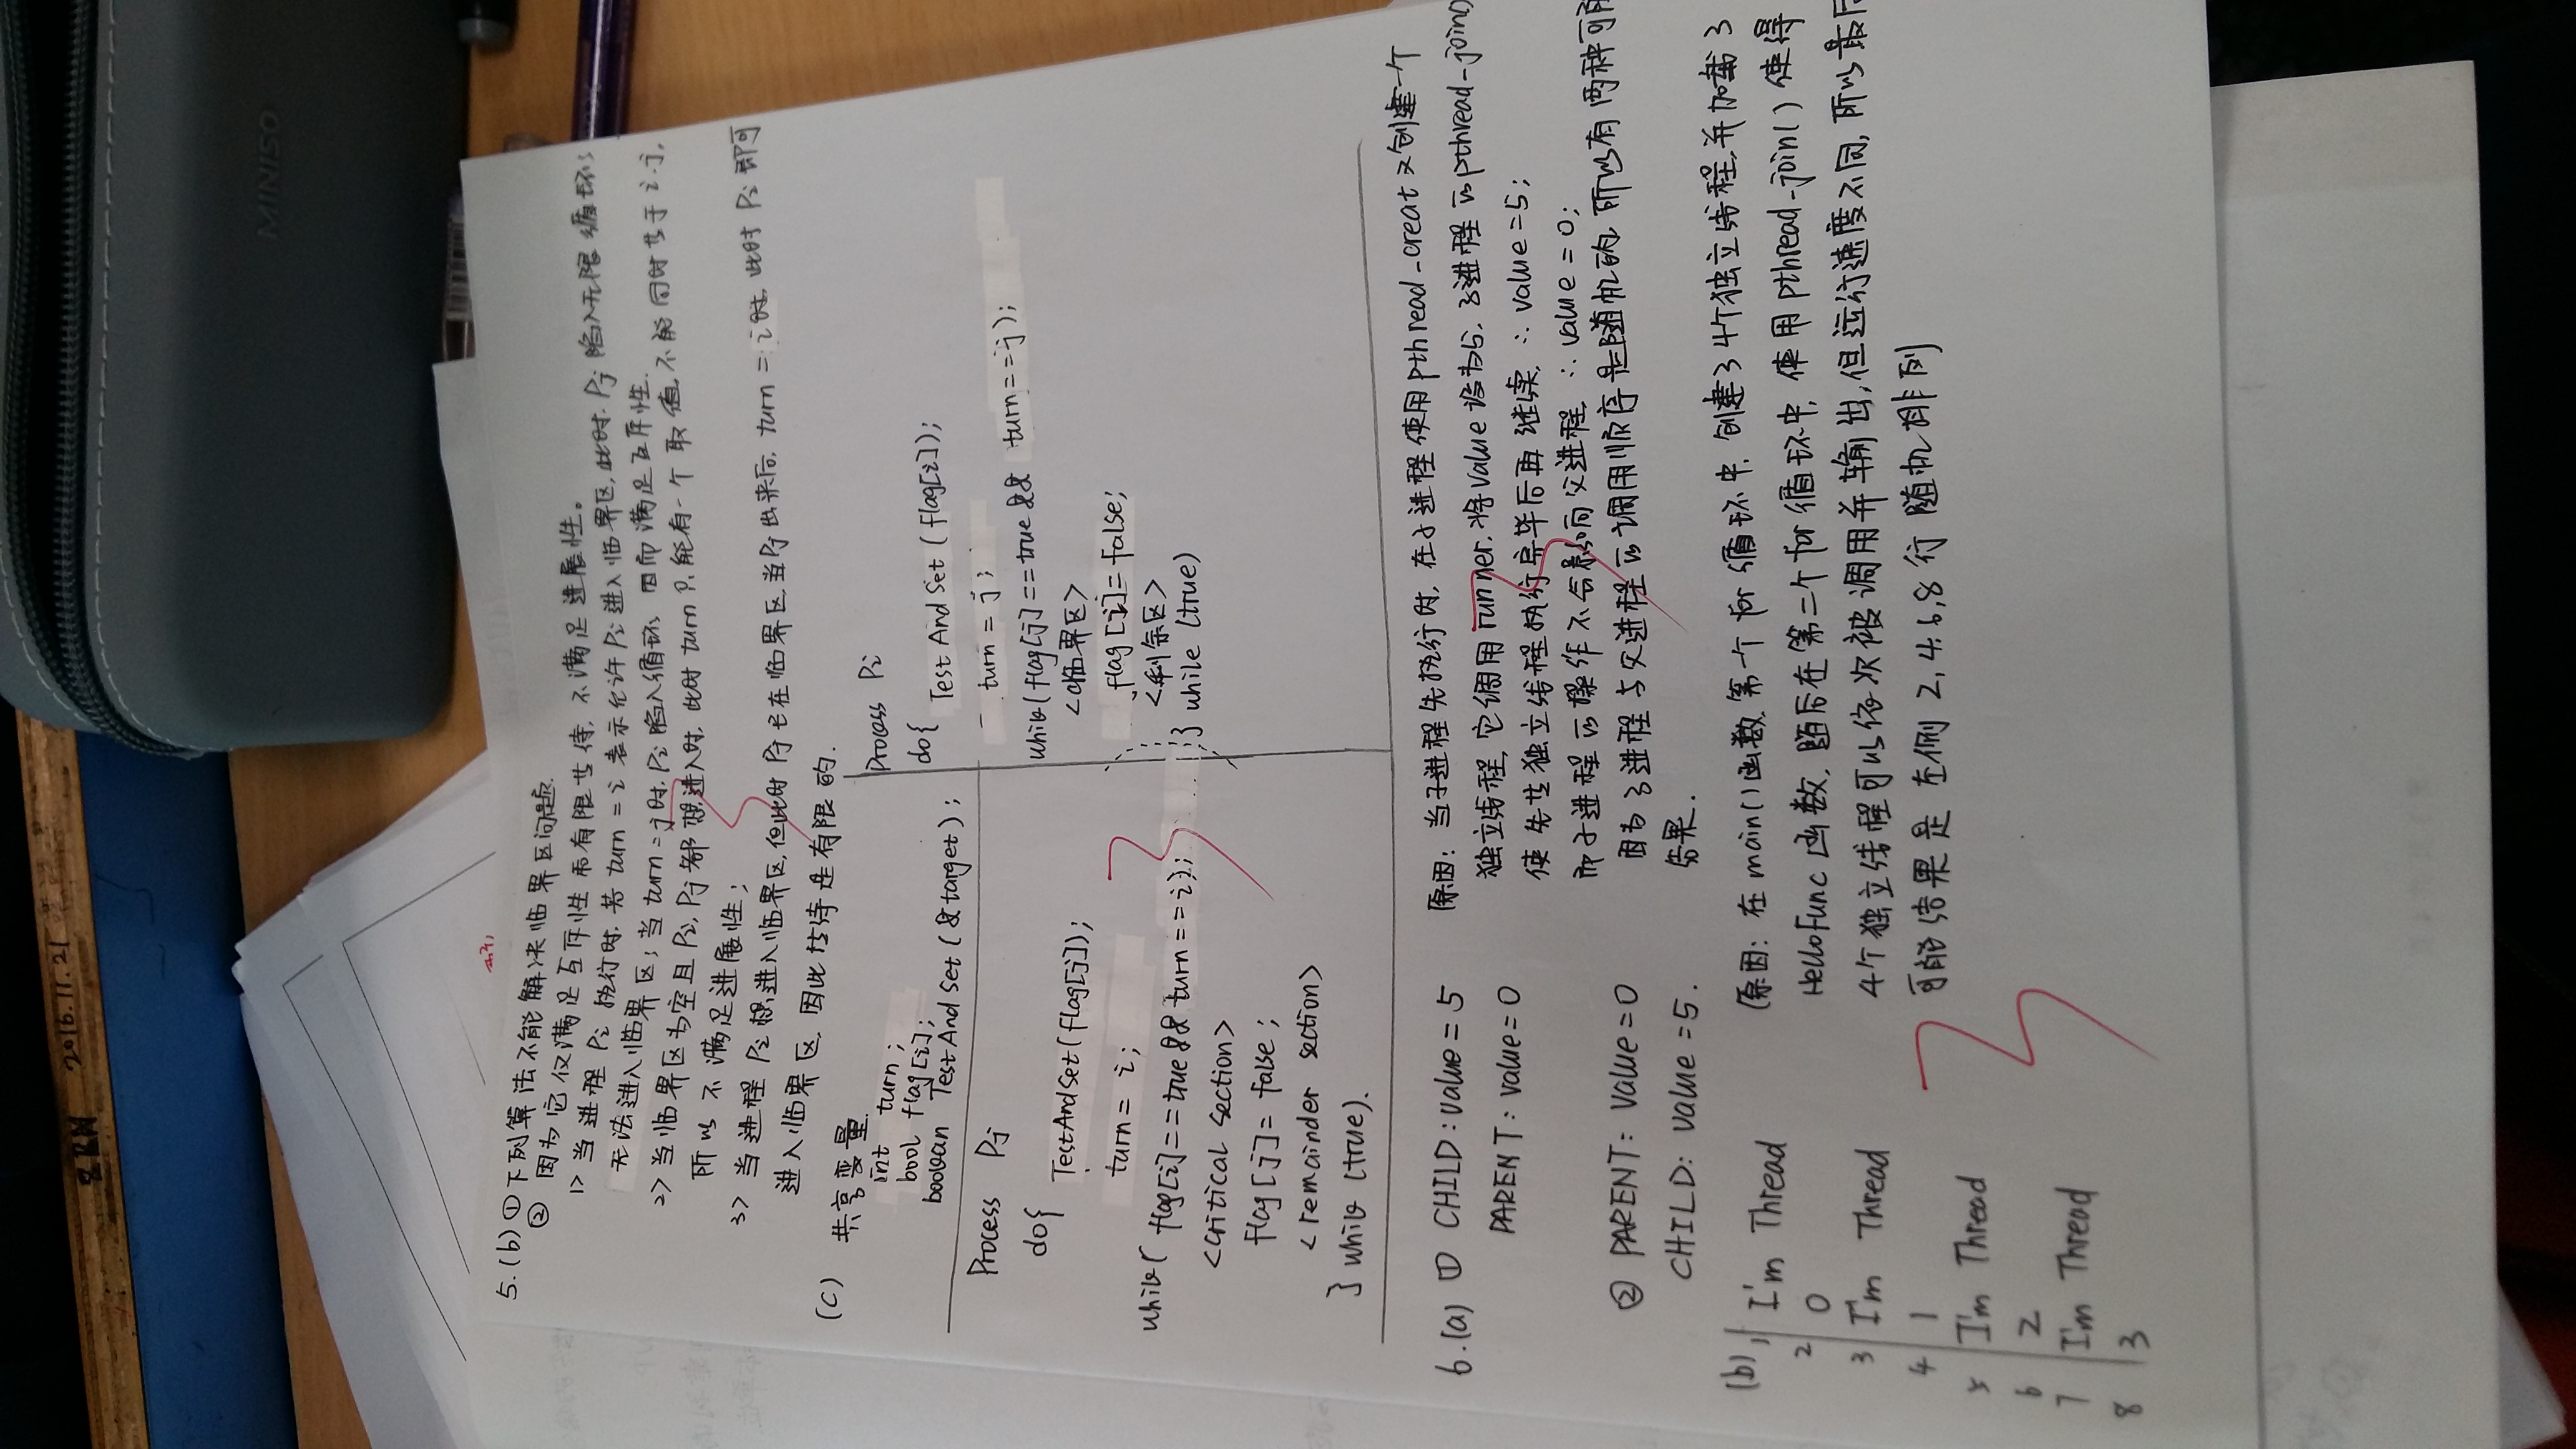 MINISO
2016.11.21
5.(b) ① 下列算法不能解决临界区问题.
② 因为它仅满足互斥性和有限等待,不满足进展性。
1> 当进程 Pi 执行时,若 turn = i 表示允许 Pi 进入临界区,此时. Pj 陷入无限循环,
无法进入临界区;当 turn = j 时, Pi 陷入循环. 因而满足互斥性.
2> 当临界区为空且 Pi, Pj 都想进入时,此时 turn 只能有一个取值,不能同时等于 i.j,
所以不满足进展性;
3> 当进程 Pi 想进入临界区,但此时 Pj 也在临界区,当 Pj 出来后, turn = i时, 此时 Pi 即可
进入临界区. 因此等待是有限的.
(c) 共享变量
int turn;
bool flag[i];
boolean TestAndSet(&target);
Process Pj
do{
TestAndSet(flag[j]);
turn = i;
while( flag[i]==true && turn==i);
<critical section>
flag[j] = false;
< remainder section>
} while (true).
Process Pi
do{
TestAndSet(flag[i]);
turn = j;
while(flag[j]==true && turn==j);
<临界区>
flag[i]=false;
<剩余区>
} while (true)
6.(a) ① CHILD:value=5
PARENT:value=0
② PARENT: value=0
CHILD: value=5.
原因: 当子进程先执行时, 在子进程使用 pthread_creat 又创建一个
独立线程, 它调用 runner. 将 value 设为5. 子进程的pthread-join()
使先等独立线程执行完毕后再继续, ∴ value=5;
而子进程的操作不会影响父进程, ∴ value=0;
因为子进程与父进程的调用顺序是随机的, 所以有两种可能
结果.
(b) 1 I'm Thread
2 0
3 I'm Thread
4 1
5 I'm Thread
6 2
7 I'm Thread
8 3
(原因: 在main()函数第一个for循环中, 创建了4个独立线程,并加载了
HelloFunc函数, 随后在第二个for循环中, 使用pthread-join()使得
4个独立线程可以依次被调用并输出,但运行速度不同, 所以最后
可能结果是左侧 2,4,6,8行随机排列